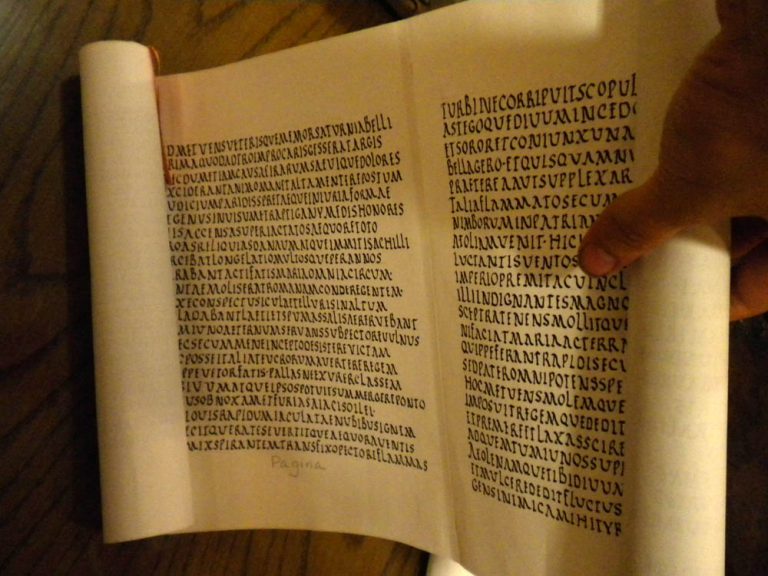 DMETVENSVETERISQUEMEMORSATURNIABELLI
RIMAQUODADTROIMPROCARISGESSERATARGIS
ECDUMETIAMCAUSAEIRARUMSAEUIQUEDOLORES
XCIDERANTANIMOMANETALTAMENTEREPOSTUM
UDICIUMPARIDISSPRETAEQUEINIURIAFORMAE
TGENUSINUISUMETRAPTIGANYMEDISHONORES
ISACCENSASUPERIACTATOSAEQUORETOTO
ROASRELIQUIASDANAUMATQUEIMMITISACHILLI
RCEBATLONGELATIOMULTOSQUEPERANNOS
RRABANTACTIFATISMARIAOMNIACIRCUM·
NTAEMOLISERATROMANAMCONDEREGENTEM·
XECONSPECTUSICULAETELLURISINALTUM
LADABANTLAETIETSPUMASSALISAERERUEBANT
MIUNOAETERNUMSERUANSSUBPECTOREUULNUS
ECSECUMMENEINCEPTODESISTEREVICTAM
CPOSSEITALIATEUCRORUMAVERTEREREGEM
PPEUETORFATIS·PALLASNEEXURERECLASSEM
GIUUMATQUEIPSOSPOTUITSUMMERGEREPONTO
USOBNOXAMETFURIASAIACISOILEI·
LOUISRAPIDUMIACULATAENUBIBUSIGNEM
ECITQUERATESEUERTITQUEAEQUORAUENTIS
MEXSPIRANTEMTRANSFIXOPECTOREFLAMMAS
Pagina
TURBINECORRIPUITSCOPUL
ASTEGOQUEDIUUMINCEDO
ETSORORETCONIUNXUNA
BELLAGERO·ETQUISQUAMNU
PRAETEREAAUTSUPPLEXAR
TALIAFLAMMATOSECUM
NIMBORUMINPATRIAM
AEOLIAMUENIT·HIC
LUCTANTISUENTOS
IMPERIOPREMITACUINCL
ILLIINDIGNANTESMAGNO
SCEPTRATENENSMOLLITQUE
NIFACIATMARIAACTERRA
QUIPPEFERANTRAPIDISECU
SEDPATEROMNIPOTENSSPE
HOCMETUENSMOLEMQUE
IMPOSUITREGEMQUEDEDIT
ETPREMEREETLAXASSCIRE
ADQUEMTUMIUNOSSUPP
AEOLENAMQUETIBIDIUUM
ETMULCEREDEDITFLUCTUS
GENSINIMICAMIHITYR